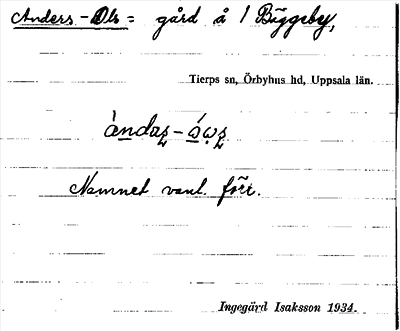 Anders-Ols = gård å 1 Byggeby,
Tierps sn, Örbyhus hd, Uppsala län.
Namnet vanl. förr.
Ingegärd Isaksson 1934.